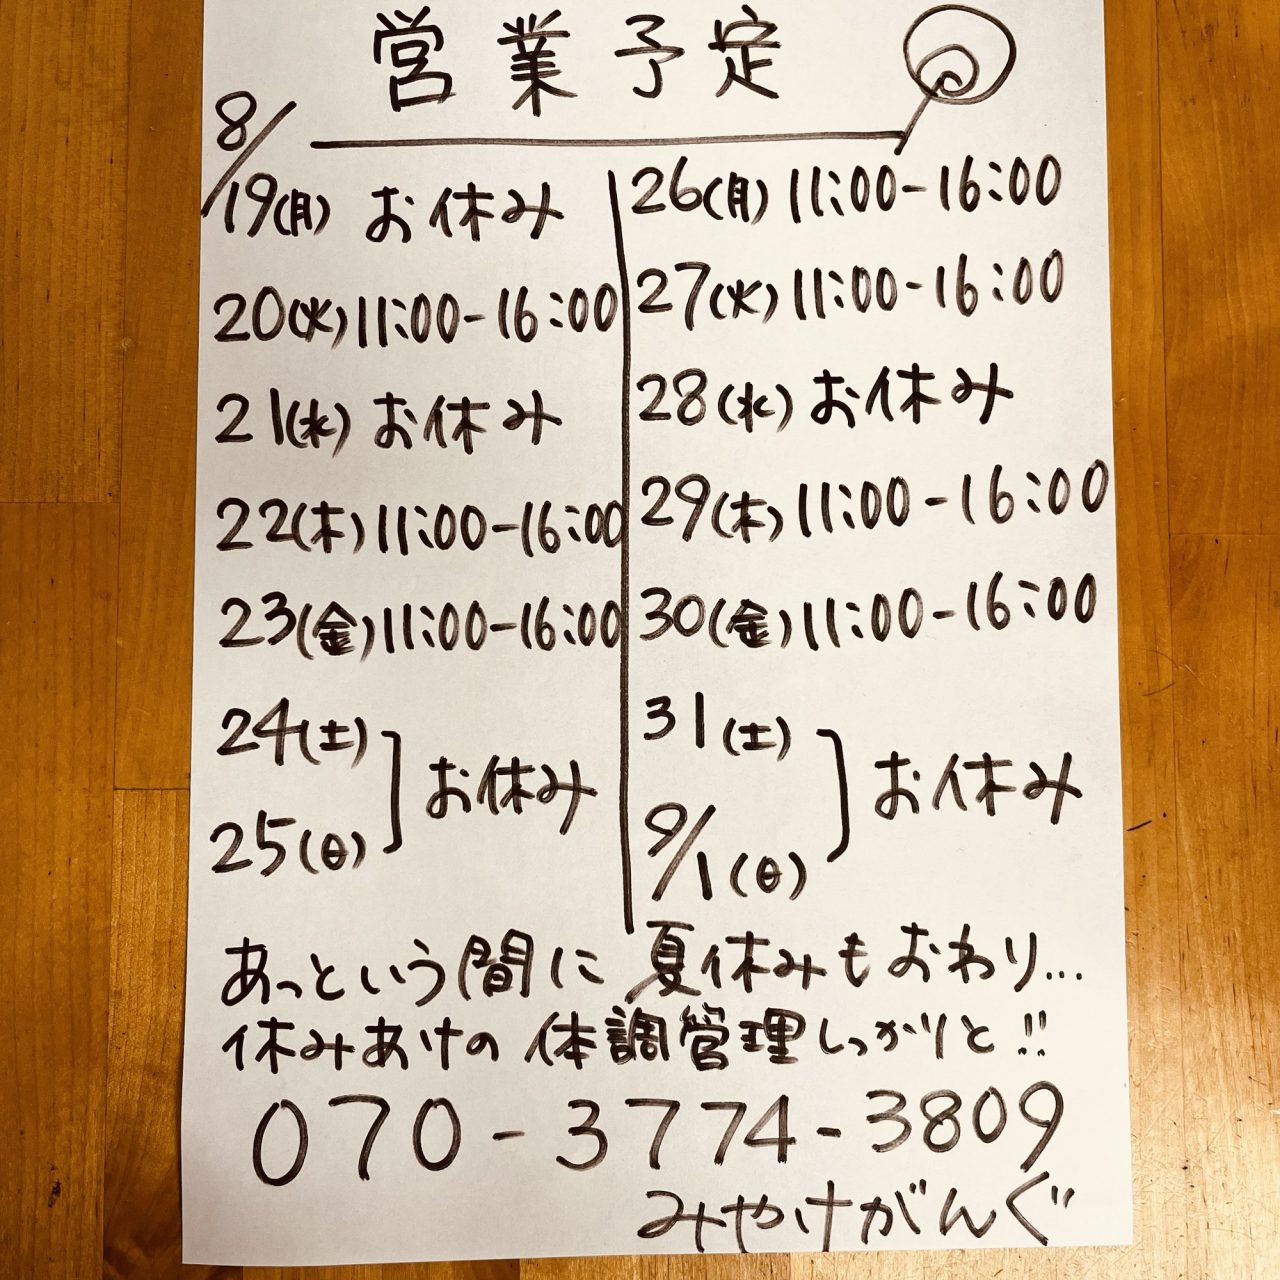 営業予定
8/19(月) お休み
20(火) 11:00-16:00
21(水) お休み
22(木) 11:00-16:00
23(金) 11:00-16:00
24(土)
25(日)
お休み
26(月) 11:00-16:00
27(火) 11:00-16:00
28(水) お休み
29(木) 11:00-16:00
30(金) 11:00-16:00
31(土)
9/1(日)
お休み
あっという間に 夏休みもおわり...
休みあけの 体調管理しっかりと!!
070-3774-3809
みやけがんぐ